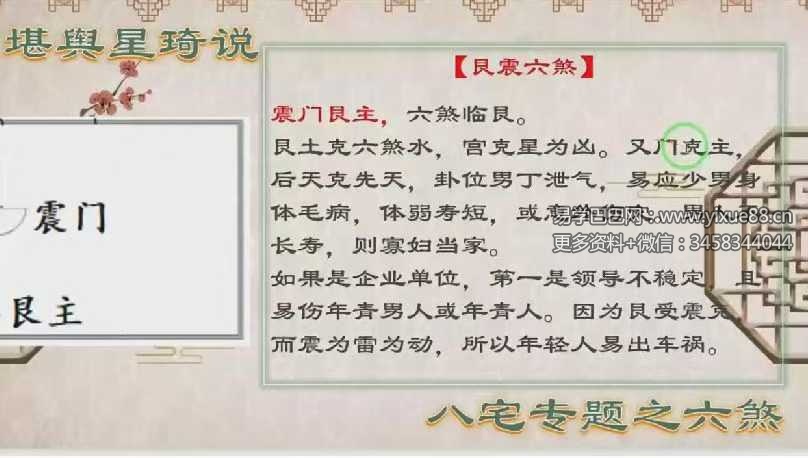 堪舆星琦说
【艮震六煞】
震门艮主，六煞临艮。
艮土克六煞水，宫克星为凶。又门克主，
后天克先天，卦位男丁泄气，易应少男身
体毛病，体弱寿短，或
易学巴巴网：www.yixue88.cn
更多资料+微信：3458344044
长寿，则寡妇当家。
如果是企业单位，第一是领导不稳定，且
易伤年青男人或年青人。因为艮受震克，
而震为雷为动，所以年轻人易出车祸。
震门
艮主
八宅专题之六煞